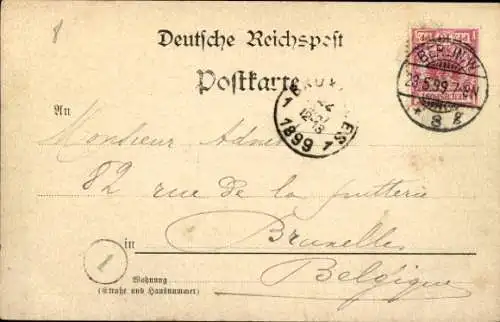 8
Deutsche Reichspost
Postkarte
BERLIN W
23.5.99.7-8N
* 8 g
BRUX LES
1 1899 1
An
Monsieur
82 rue de la fruiterie
in Bruxelles
1
Belgique
Wohnung
(Straße und Hausnummer)